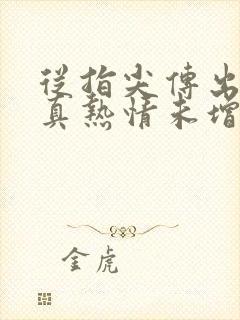 從指尖傳出
真熱情未增
金虎